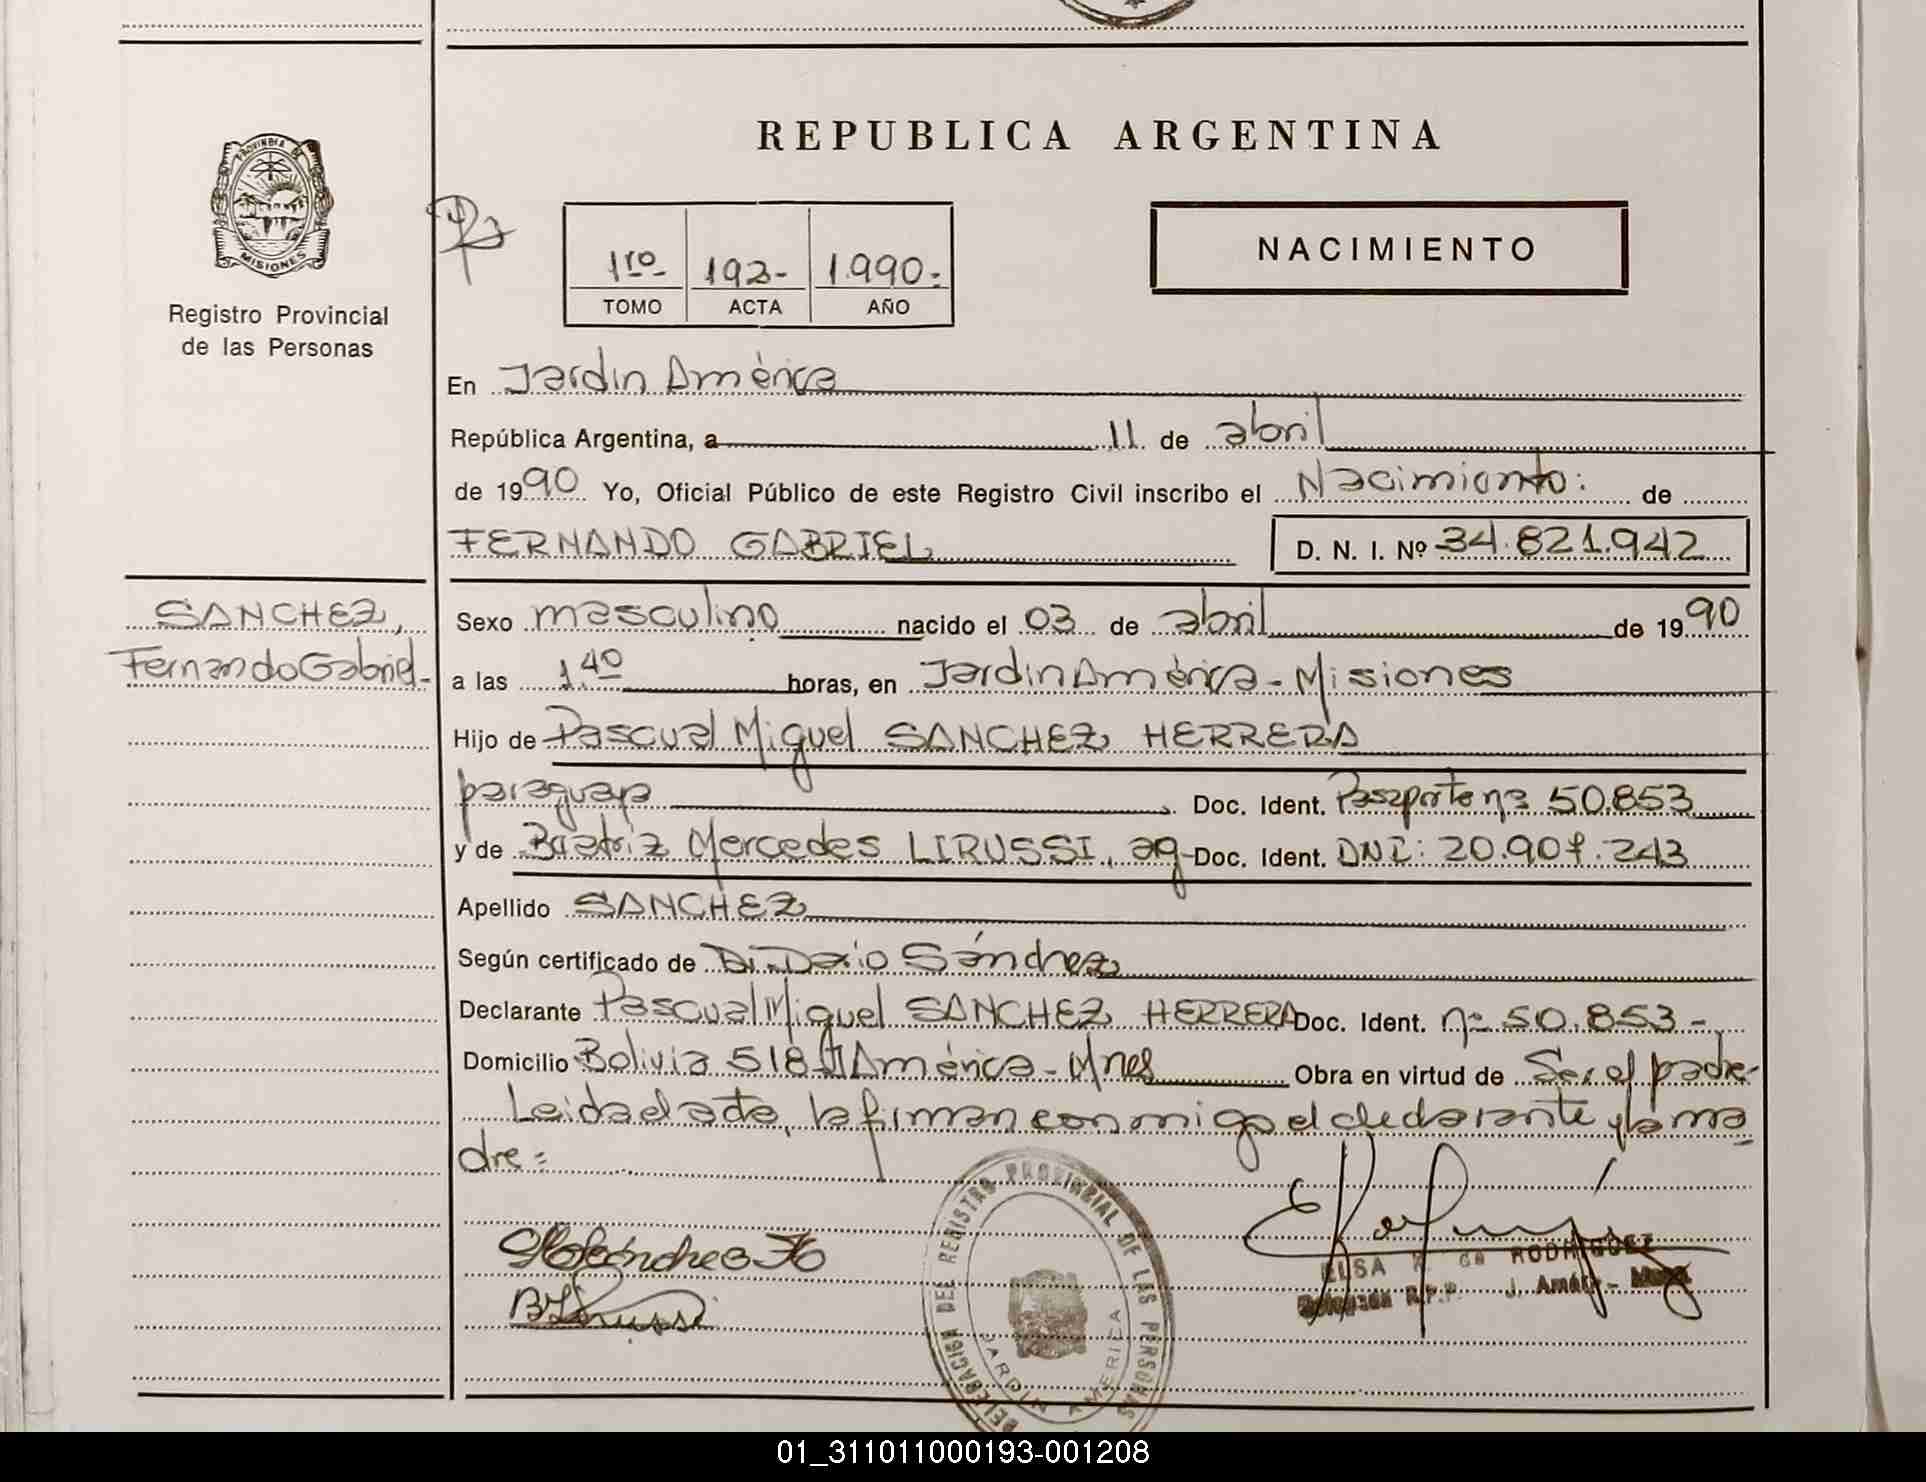 PROVINCIA DE
MISIONES
Registro Provincial
de las Personas
SANCHEZ,
Fernando Gabriel-
REPUBLICA ARGENTINA
1ro 193- 1.990-
TOMO ACTA AÑO
NACIMIENTO
En Jardin América
República Argentina, a 11 de abril
de 1990 Yo, Oficial Público de este Registro Civil inscribo el Nacimiento: de
FERNANDO GABRIEL D. N. I. Nº 34.821.942
Sexo masculino nacido el 03 de abril de 1990
a las 1.40 horas, en Jardin América - Misiones
Hijo de Pascual Miguel SANCHEZ HERRERA
paraguaya Doc. Ident. Pasaporte nº 50.853
y de Beatriz Mercedes LIRUSSI, ag- Doc. Ident. DNI: 20.907.243
Apellido SANCHEZ
Según certificado de Dr. Dario Sánchez
Declarante Pascual Miguel SANCHEZ HERRERA Doc. Ident. nº 50.853-
Domicilio Bolivia 518 J América - Mnes Obra en virtud de Ser el padre-
Leida el acta, la firman conmigo el declarante y la ma
dre=
BLirussi
ELSA K. de RODRIGUEZ
Delegada R.P.P. J. Amér.-
DELEGACION DEL REGISTRO PROVINCIAL DE LAS PERSONAS
JARDIN AMERICA
01_311011000193-001208